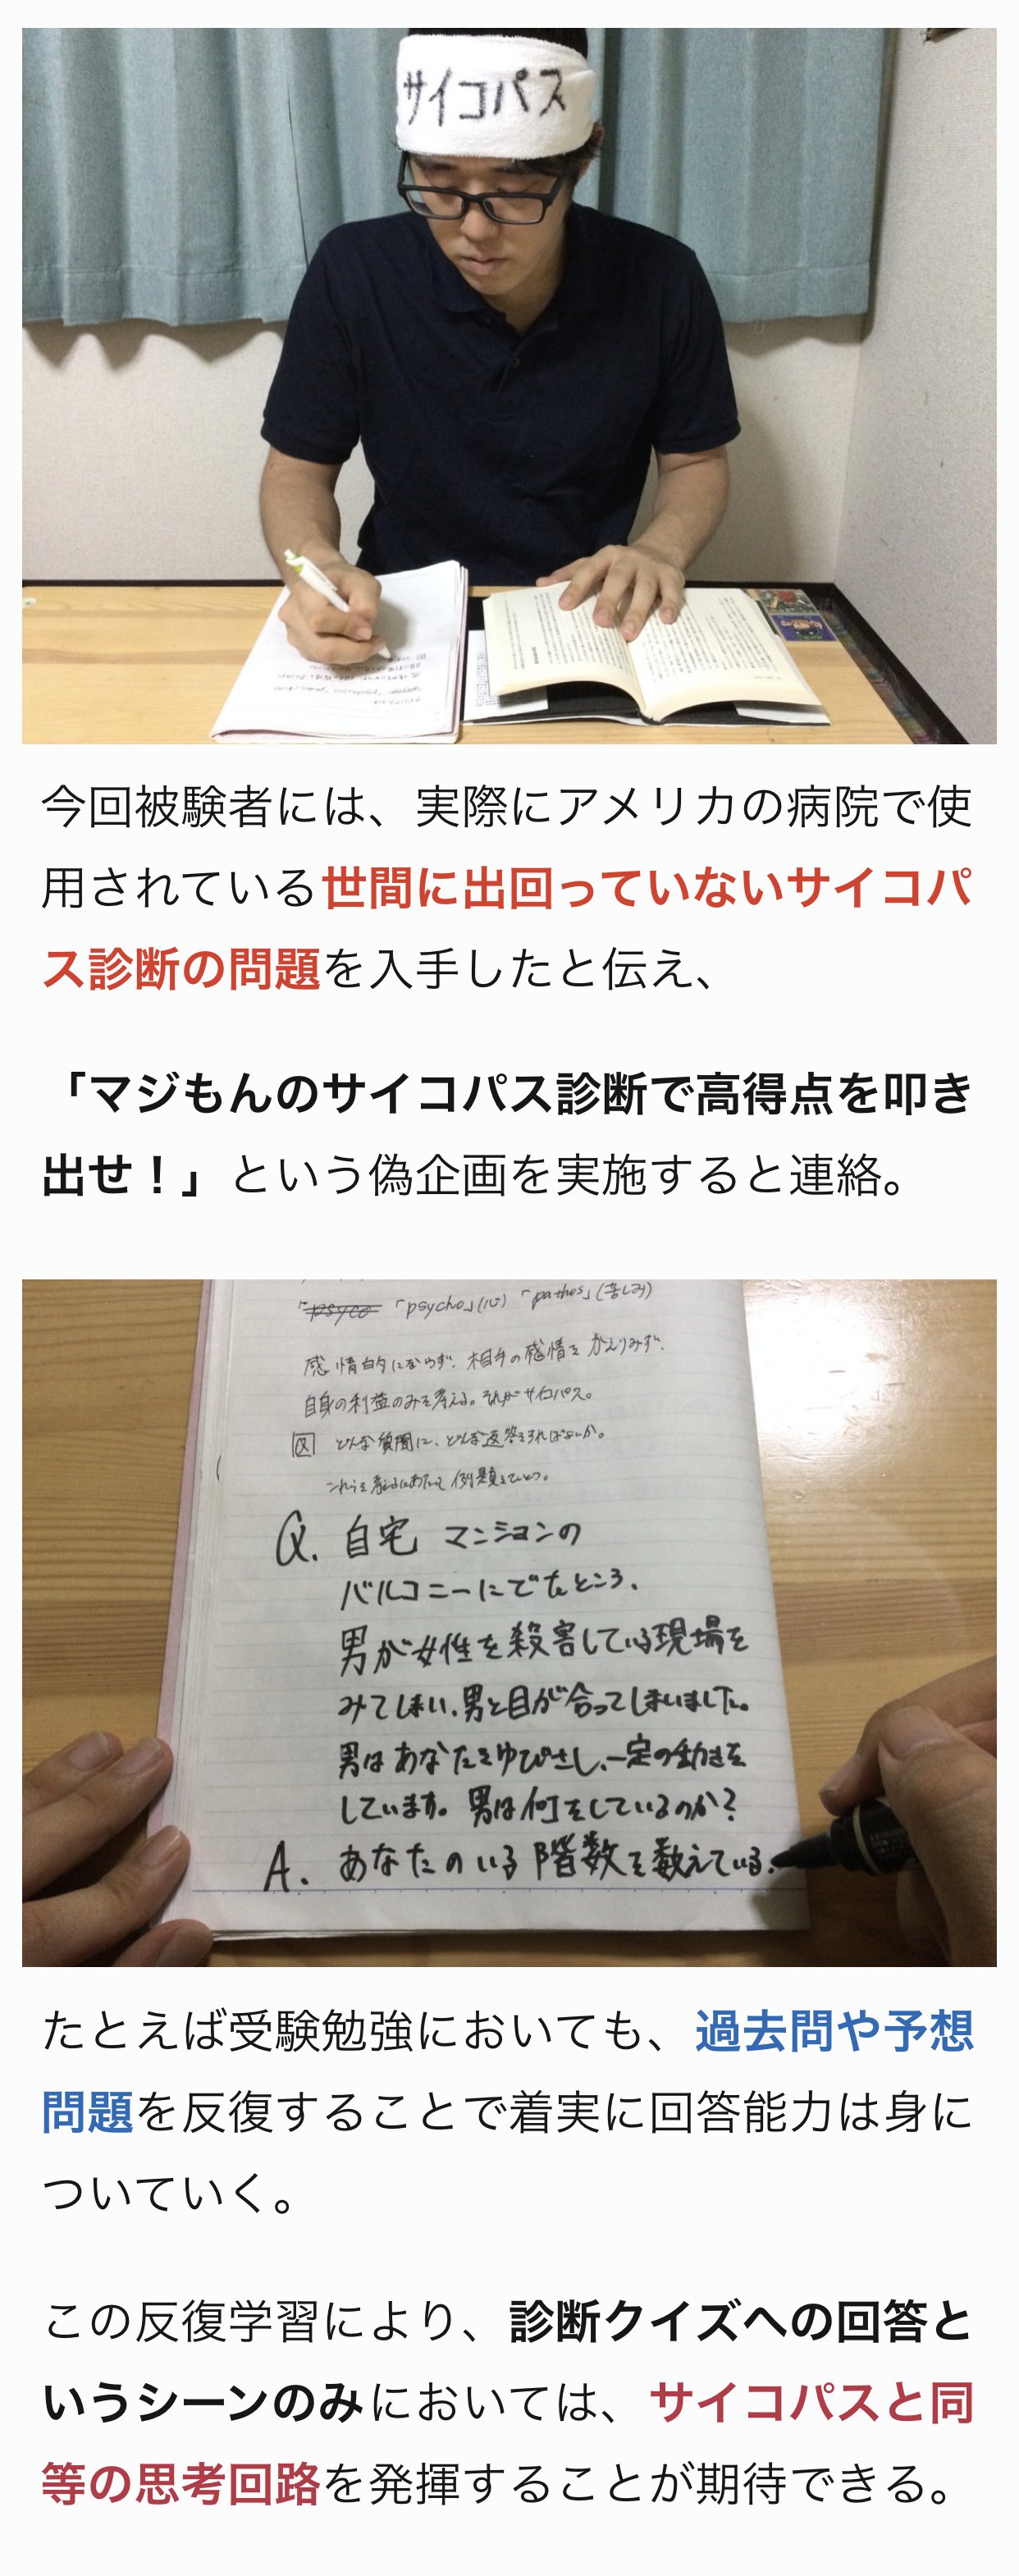 サイコパス
今回被験者には、実際にアメリカの病院で使
用されている世間に出回っていないサイコパ
ス診断の問題を入手したと伝え、
「マジもんのサイコパス診断で高得点を叩き
出せ！」という偽企画を実施すると連絡。
「psyco 「psycho」(心) 「pathos」(苦しみ)
感情的にならず、相手の感情をかえりみず、
自身の利益のみを考える。それがサイコパス。
図 どんな質問に、どんな返答をすればよいか。
これらを考えるにあたって例題をひとつ。
Q. 自宅マンションの
バルコニーにでたところ、
男が女性を殺害している現場を
みてしまい、男と目が合ってしまいました。
男はあなたをゆびさし、一定の動きを
しています。男は何をしているのか？
A. あなたのいる階数を数えている。
たとえば受験勉強においても、過去問や予想
問題を反復することで着実に回答能力は身に
ついていく。
この反復学習により、診断クイズへの回答と
いうシーンのみにおいては、サイコパスと同
等の思考回路を発揮することが期待できる。